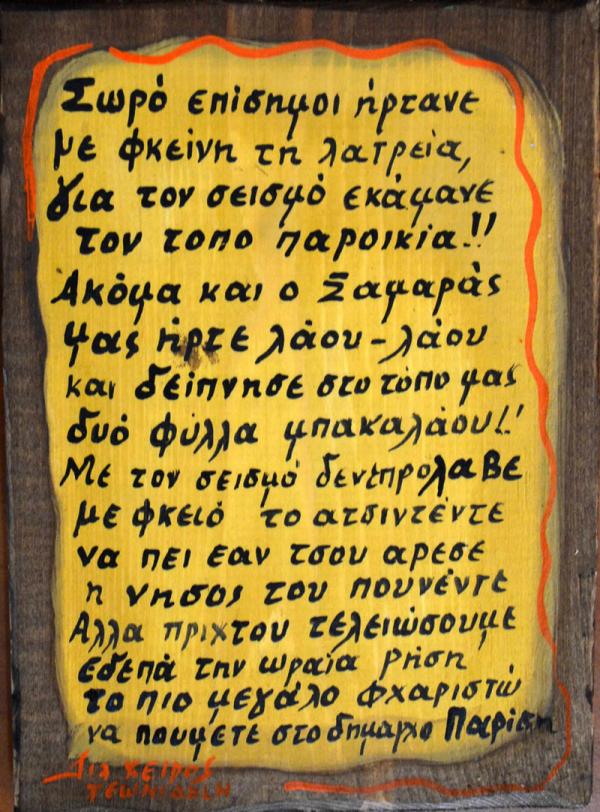 Σωρό επίσημοι ήρτανε
με φκείνη τη λατρεία,
για τον σεισμό εκάμανε
τον τοπο παροικία!!
Ακόμα και ο Σαμαράς
μας ήρτε λάου-λάου
και δείπνησε στο τόπο μας
δυό φύλλα μπακαλάου!!
Με τον σεισμό δεν επρόλαβε
με φκειό το ατσιντέντε
να πει εαν τσου αρεσε
η νήσος του πουνέντε
Αλλα πριχτου τελειώσουμε
εδεπά την ωραία ρήση
το πιο μεγάλο φχαριστώ
να πουμετε στο δημαρχο Παρίση
Δια χειρός